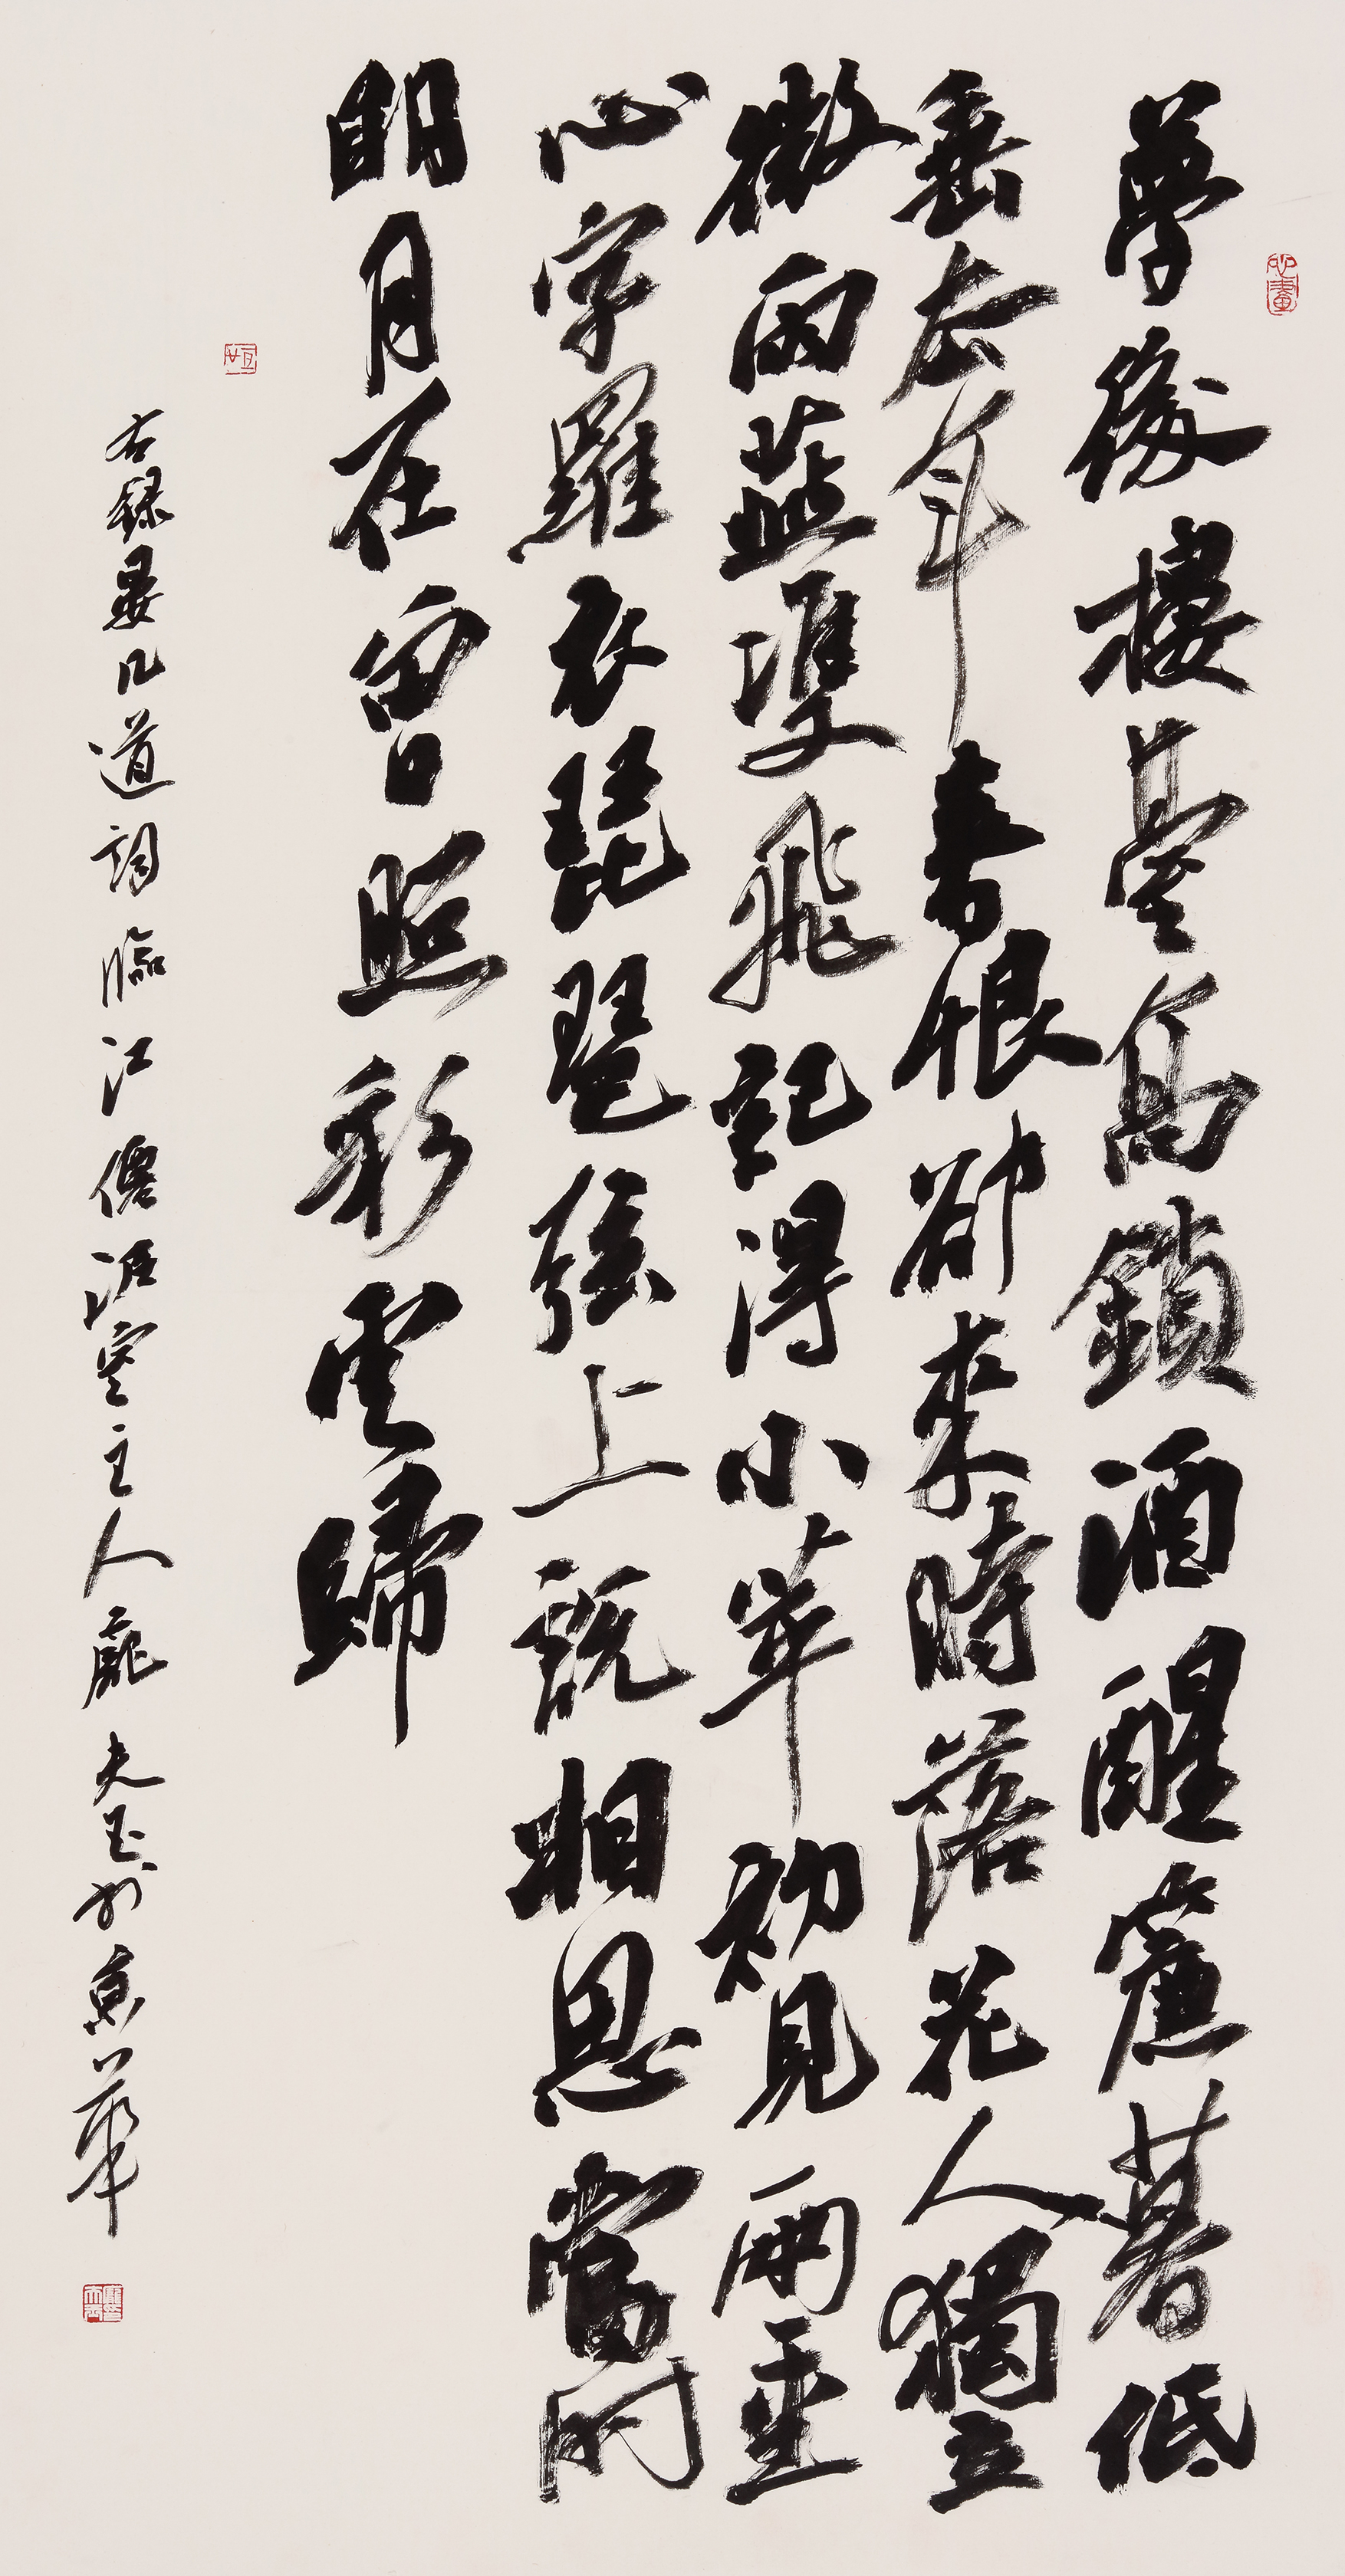 心畫
夢後樓臺高鎖酒醒簾暮低
垂去年春恨卻來時落花人獨立
微雨燕雙飛記得小苹初見兩重
心字羅衣琵琶弦上說相思當時
明月在曾照彩雲歸
右錄晏几道詞臨江僊主人龐玉於京華